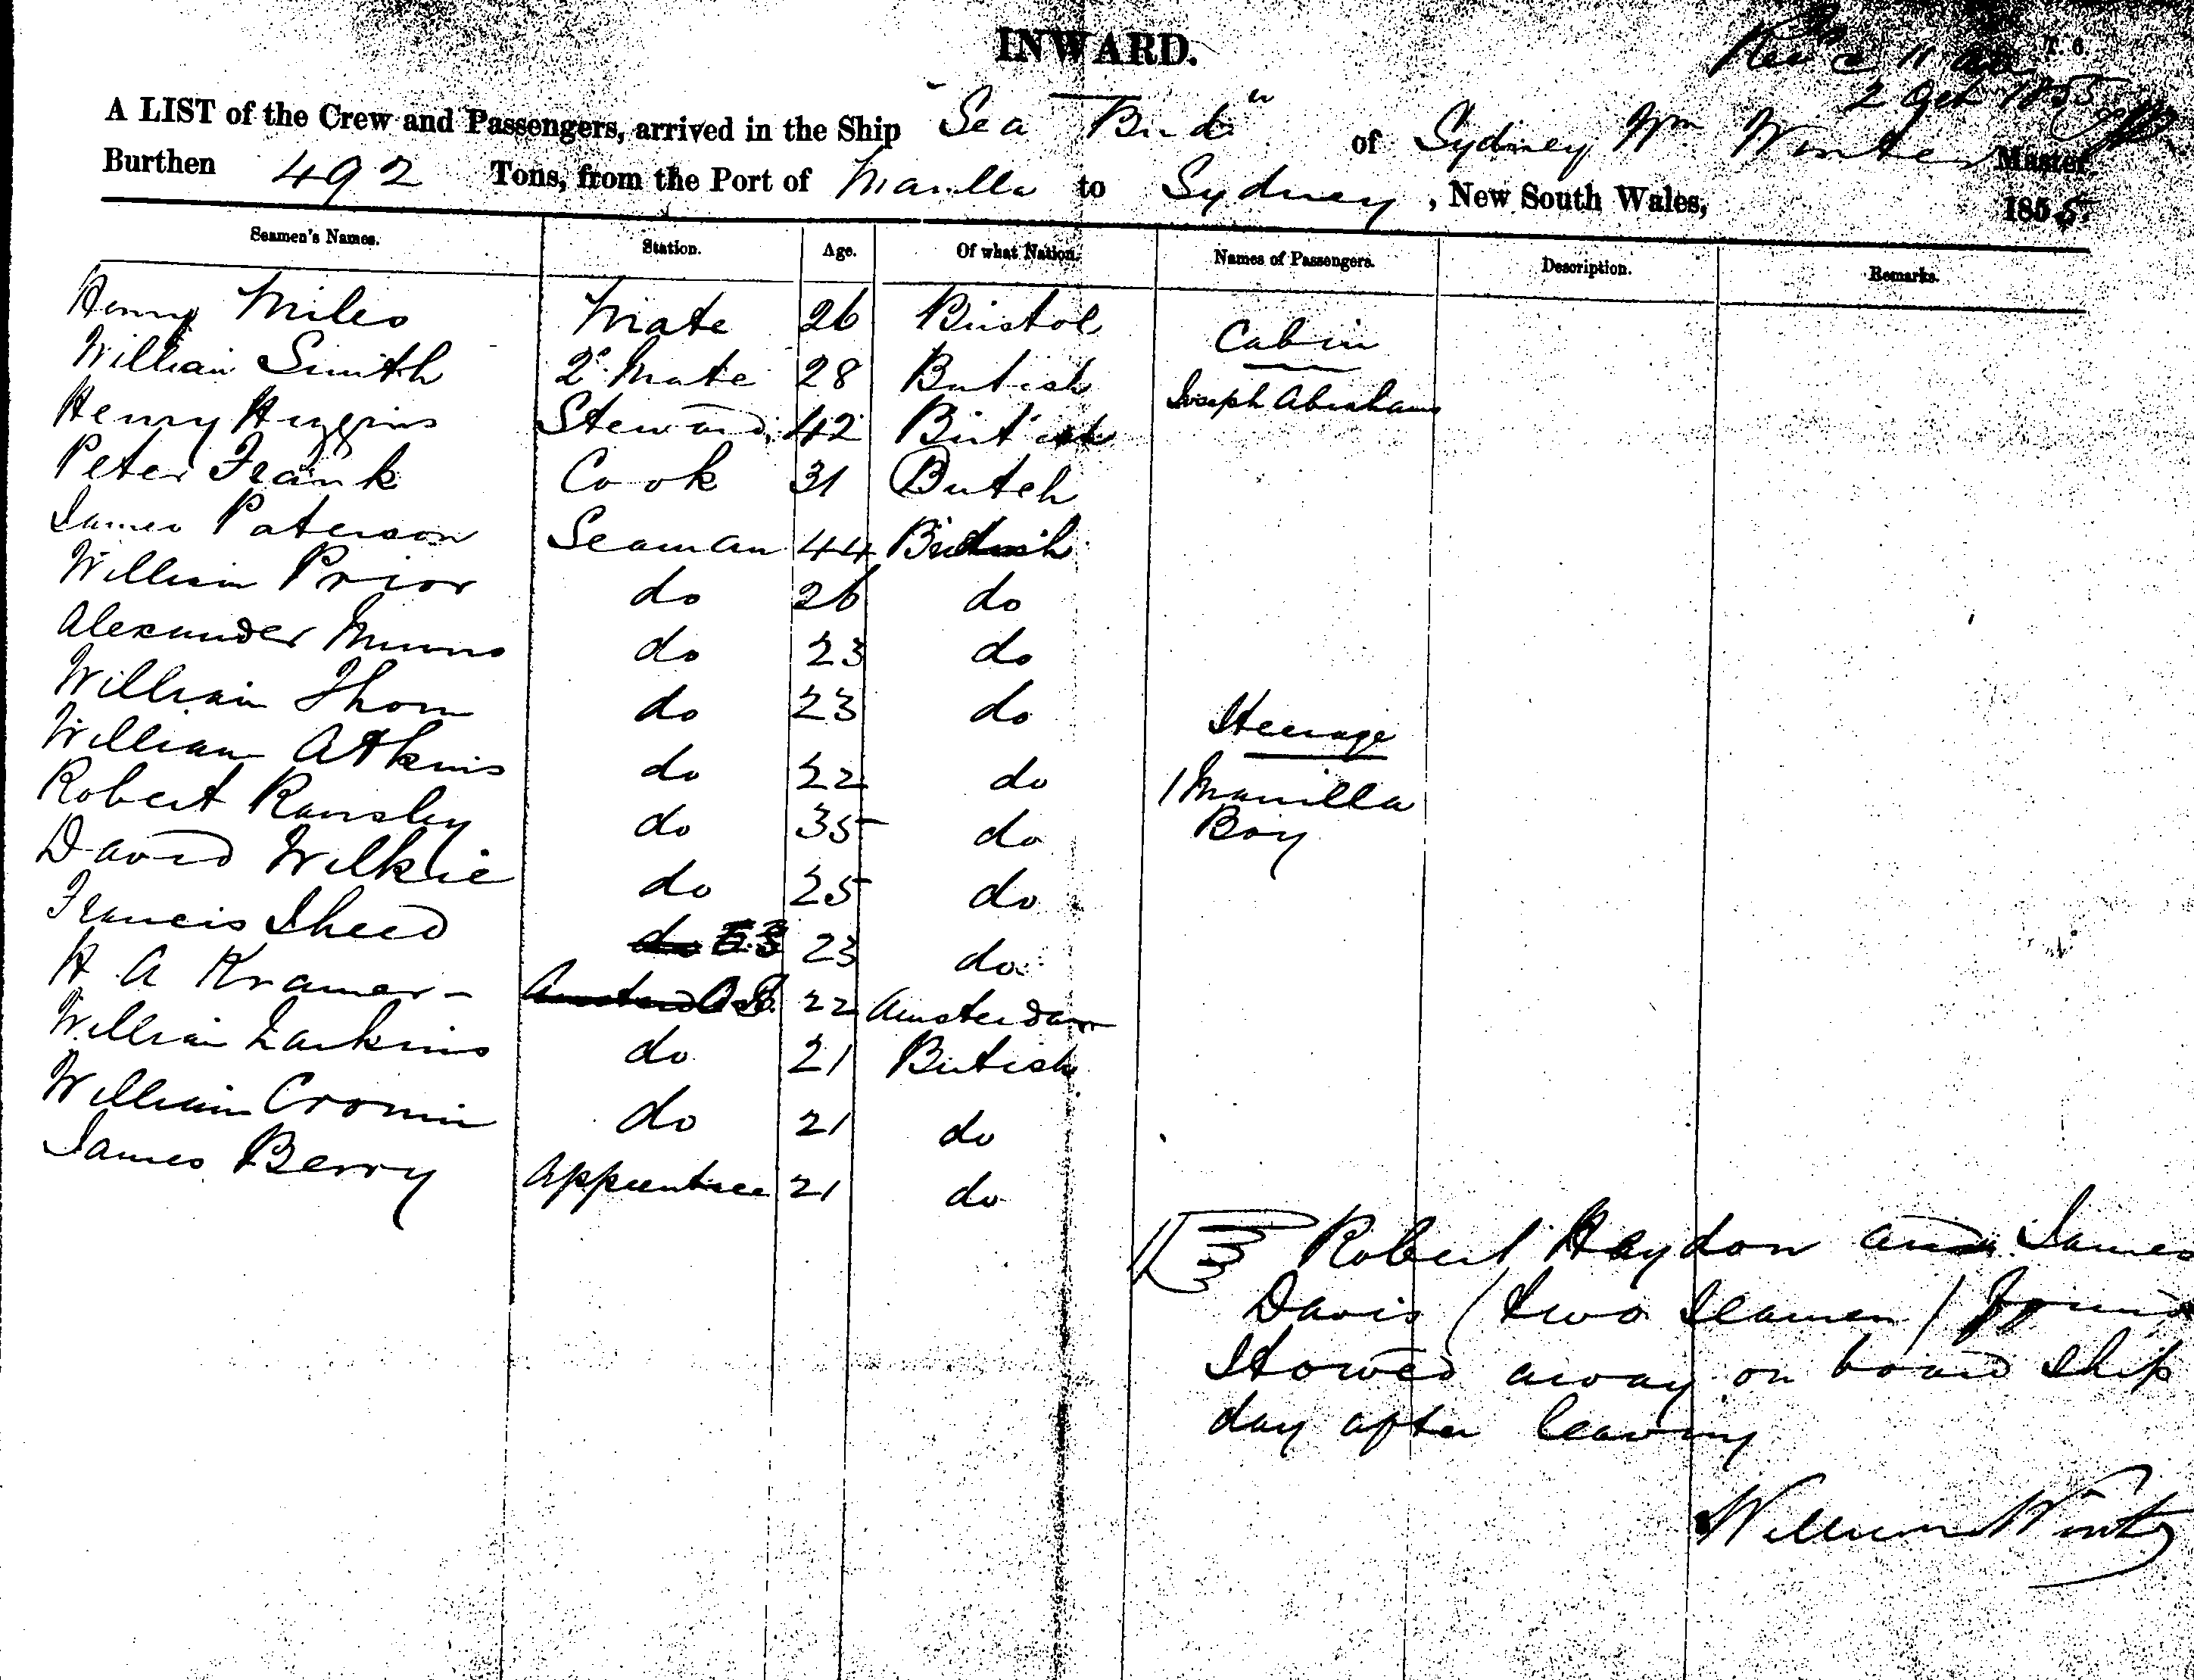 INWARD.
T. 6.
Rec'd 11 am
2 Oct 1855
A LIST of the Crew and Passengers, arrived in the Ship "Sea Bird" of Sydney Wm Winter Master,
Burthen 492 Tons, from the Port of Manilla to Sydney, New South Wales, 1855.
Seamen's Names. Station. Age. Of what Nation. Names of Passengers. Description. Remarks.
Henry Miles Mate 26 Bristol
Cabin
William Smith 2d Mate 28 British Joseph Abrahams
Henry Huggins Steward 42 British
Peter Frank Cook 31 Dutch
James Paterson Seaman 44 British
William Prior do 26 do
Alexander Munro do 23 do
William Thom do 23 do
Steerage
William Atkins do 22 do 1 Manilla
Robert Ransley do 35 do Boy
David Wilkie do 25 do
Francis Sheed do 23 do
H A Kramer - 22 Amsterdam
William Larkins do 21 British
William Cronin do 21 do
James Berry Apprentice 21 do
Robert Haydon and James
Davis / two Seamen / found
Stowed away on board Ship
day after leaving
William Winter